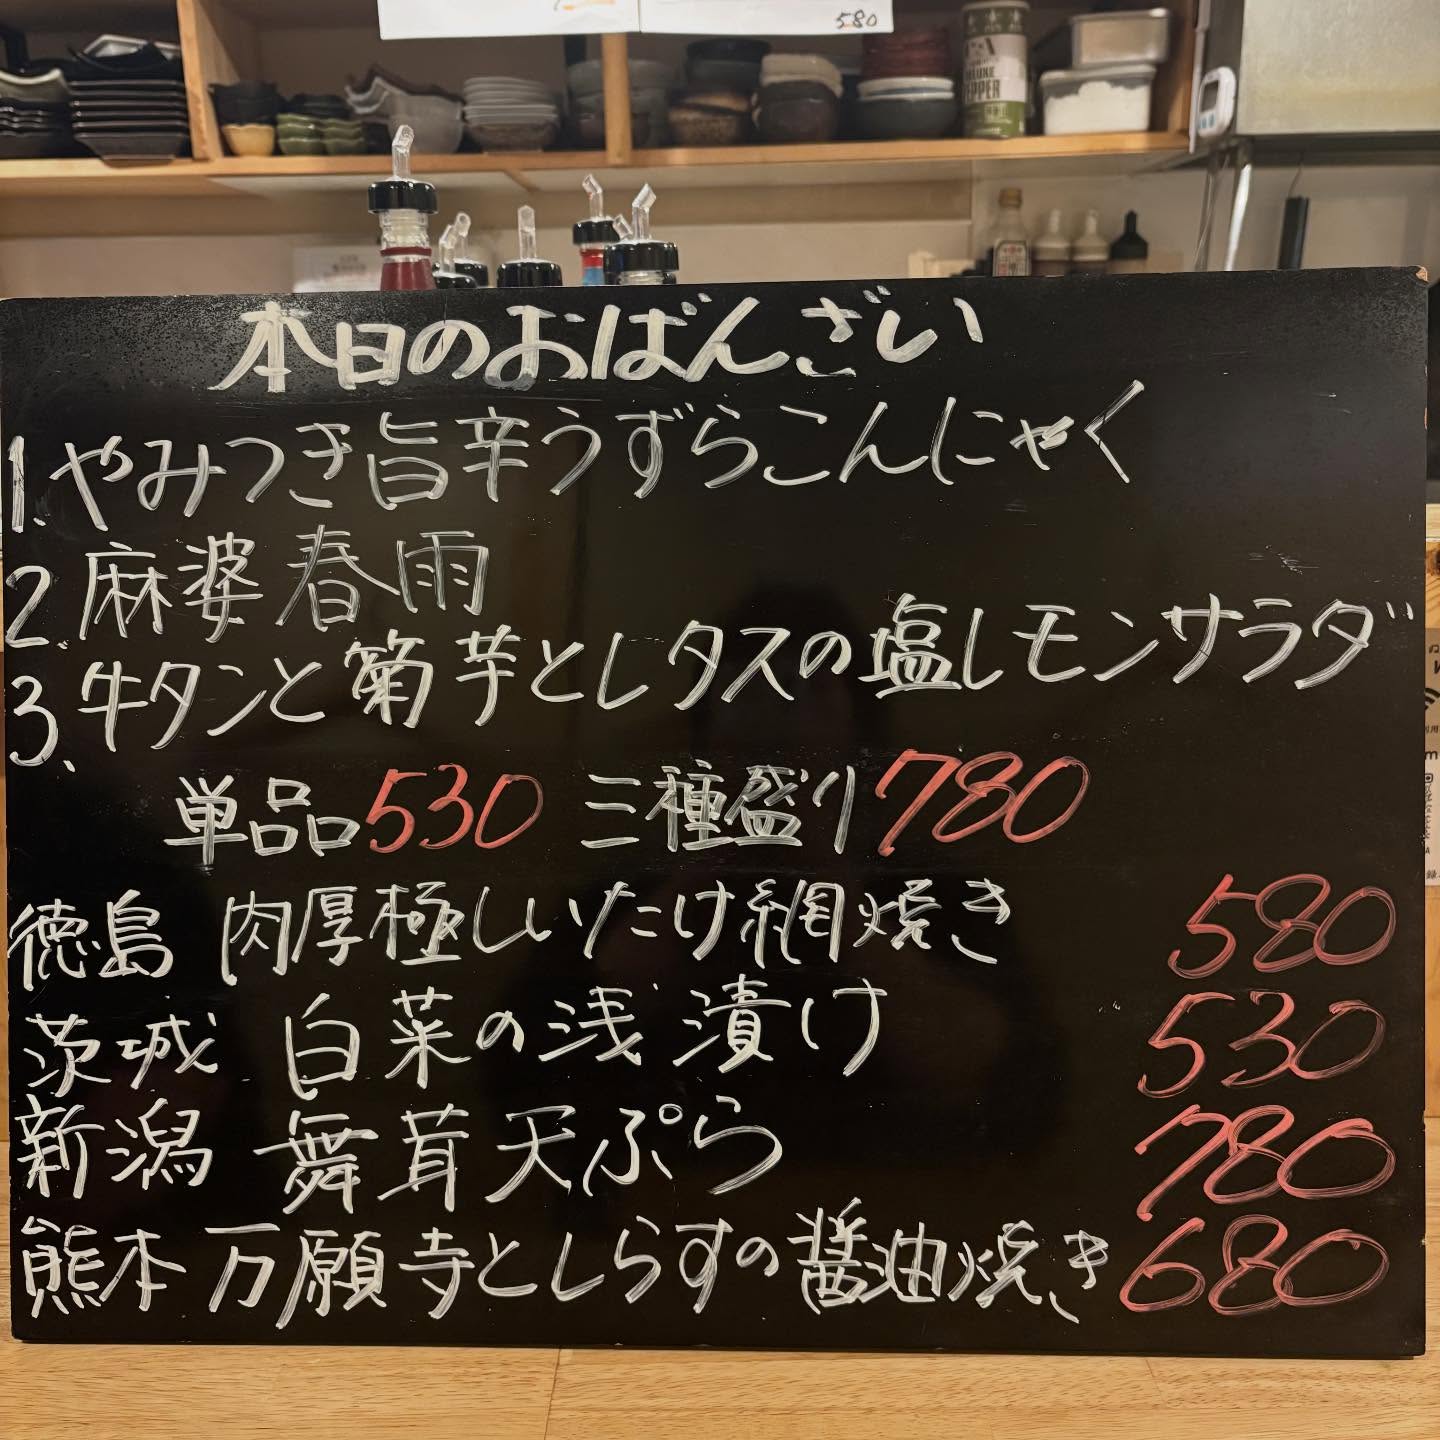 580
PEPPER
本日のおばんざい
1.やみつき旨辛うずらこんにゃく
2.麻婆春雨
3.牛タンと菊芋とレタスの塩レモンサラダ
単品530 三種盛り780
徳島 肉厚極しいたけ網焼き 580
茨城 白菜の浅漬け 530
新潟 舞茸天ぷら 780
熊本 万願寺としらすの醤油焼き 680